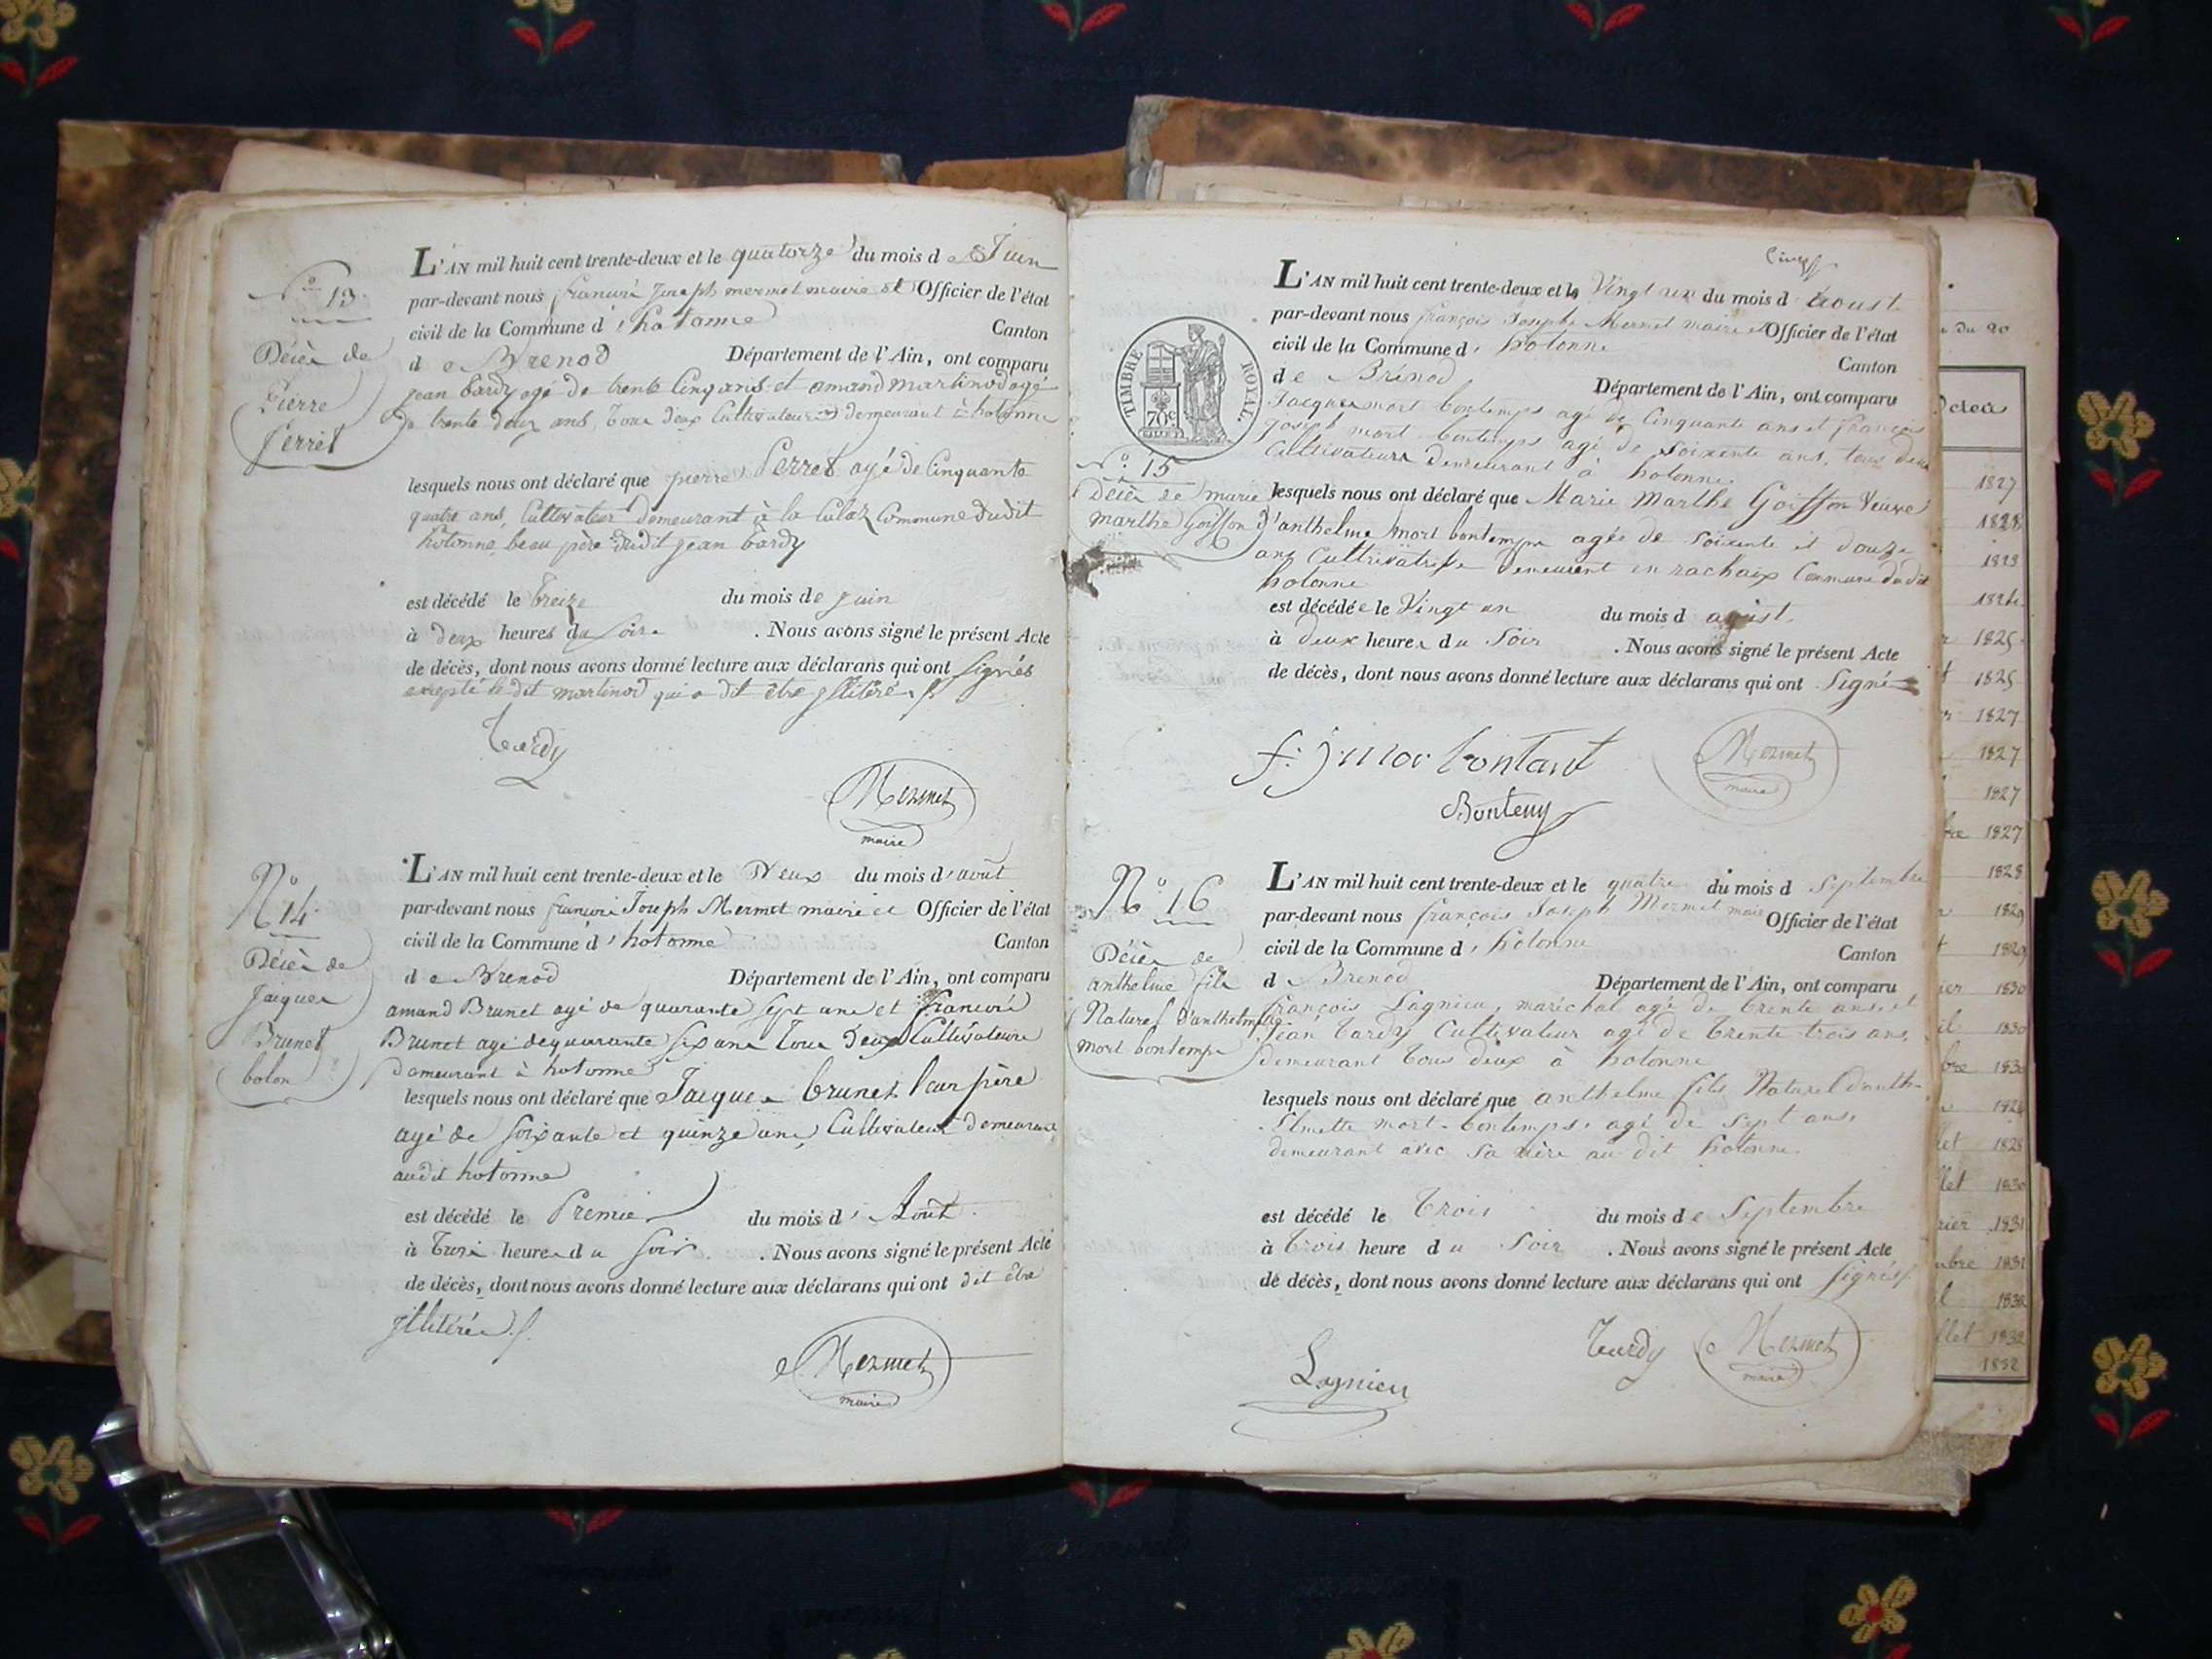 N.º 13.
Décès de
Pierre
Perret
L'AN mil huit cent trente-deux et le quatorze du mois de Juin
par-devant nous françois Joseph mermet maire et Officier de l'état
civil de la Commune d'hotonne Canton
de Brenod Département de l'Ain, ont comparu
jean tardy agé de trente cinq ans et amand martinod agé
de trente deux ans, tous deux Cultivateurs demeurant à hotonne
lesquels nous ont déclaré que pierre Perret agé de Cinquante
quatre ans, Cultivateur demeurant à la Culaz Commune dudit
hotonne beau père dudit jean tardy
est décédé le treize du mois de juin
à deux heures du soir . Nous avons signé le présent Acte
de décès, dont nous avons donné lecture aux déclarans qui ont signés
excepté le dit martinod qui a dit être illitéré
Tardy
Mermet
maire
Nº 14.
Décès de
Jacques
Brunet
bolon
L'AN mil huit cent trente-deux et le Deux du mois d'août
par-devant nous françois Joseph Mermet maire et Officier de l'état
civil de la Commune d'hotonne Canton
de Brenod Département de l'Ain, ont comparu
amand Brunet agé de quarante sept ans et françois
Brunet agé de quarante six ans tous deux Cultivateurs
demeurant à hotonne
lesquels nous ont déclaré que Jacques brunet leur père
agé de soixante et quinze ans, Cultivateur demeurant
audit hotonne
est décédé le Premier du mois d'Août
à trois heures du soir . Nous avons signé le présent Acte
de décès, dont nous avons donné lecture aux déclarans qui ont dit être
illitérés
Mermet
maire
TIMBRE ROYAL
70c
L'AN mil huit cent trente-deux et le Vingt un du mois d'aoust
par-devant nous françois Joseph Mermet maire et Officier de l'état
civil de la Commune d'hotonne
Canton
de Brénod Département de l'Ain, ont comparu
Jacques mort bontemps agé de Cinquante ans et françois
joseph mort bontemps agé de soixente ans, tous deux
Cultivateurs demeurant à hotonne
Nº 15
Décès de marie
marthe Goiffon
lesquels nous ont déclaré que Marie Marthe Goiffon Veuve
d'anthelme mort bontemps agée de soixente et douze
ans Cultivatrisse demeurent en rachaix Commune dudit
hotonne
est décédée le Vingt un du mois d'aoust
à deux heures du soir . Nous avons signé le présent Acte
de décès, dont nous avons donné lecture aux déclarans qui ont signé
Mermet
maire
Bontemp
Nº 16
Décès de
anthelme fils
Naturel d'anthelmette
mort bontemps
L'AN mil huit cent trente-deux et le quatre du mois d Septembre
par-devant nous françois Joseph Mermet maire Officier de l'état
civil de la Commune d'hotonne Canton
d Brenod Département de l'Ain, ont comparu
françois Lagnieu, maréchal agé de trente ans et
Jean Tardy Cultivateur agé de trente trois ans,
demeurant tous deux à hotonne
lesquels nous ont déclaré que anthelme fils Naturel d'anth-
elmette mort-bontemps, agé de sept ans,
demeurant avec sa mère au dit hotonne.
est décédé le trois du mois de Septembre
à trois heure du soir . Nous avons signé le présent Acte
de décès, dont nous avons donné lecture aux déclarans qui ont signés
Tardy
Mermet
maire
Lagnieu
du 20
1827
1828
1825
1825
1827
1827
1827
bre 1827
1828
1829
1829
ier 1830
il 1830
bre 1830
let 1828
llet 1830
rier 1831
mbre 1831
l 1832
llet 1832
1832